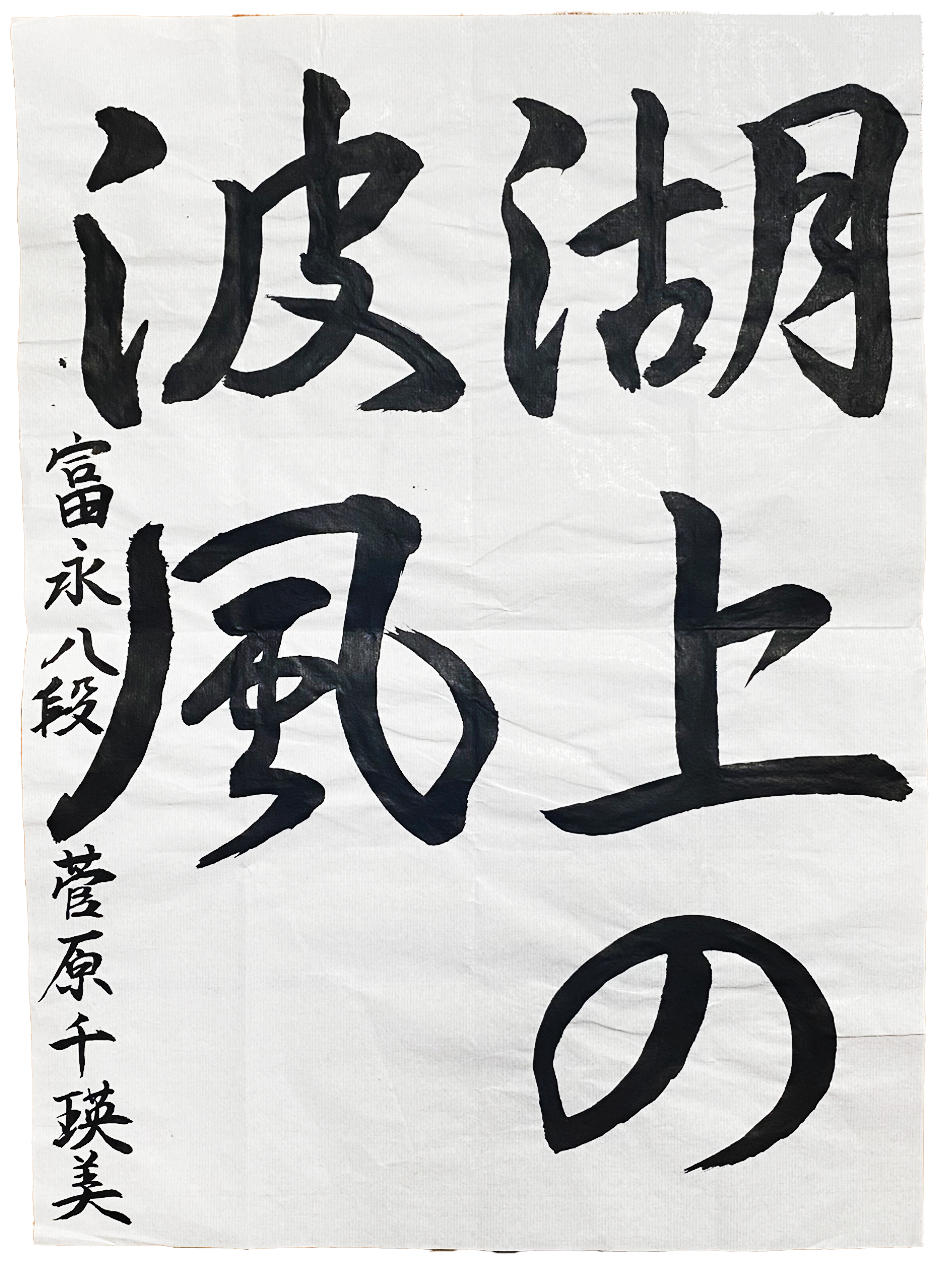 湖上の
波風
富永八段 菅原千瑛美